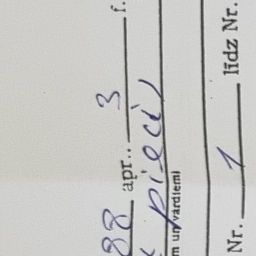 88 apr.. 3 f.
pieci,
m un vārdiem)
Nr. 1 līdz Nr.